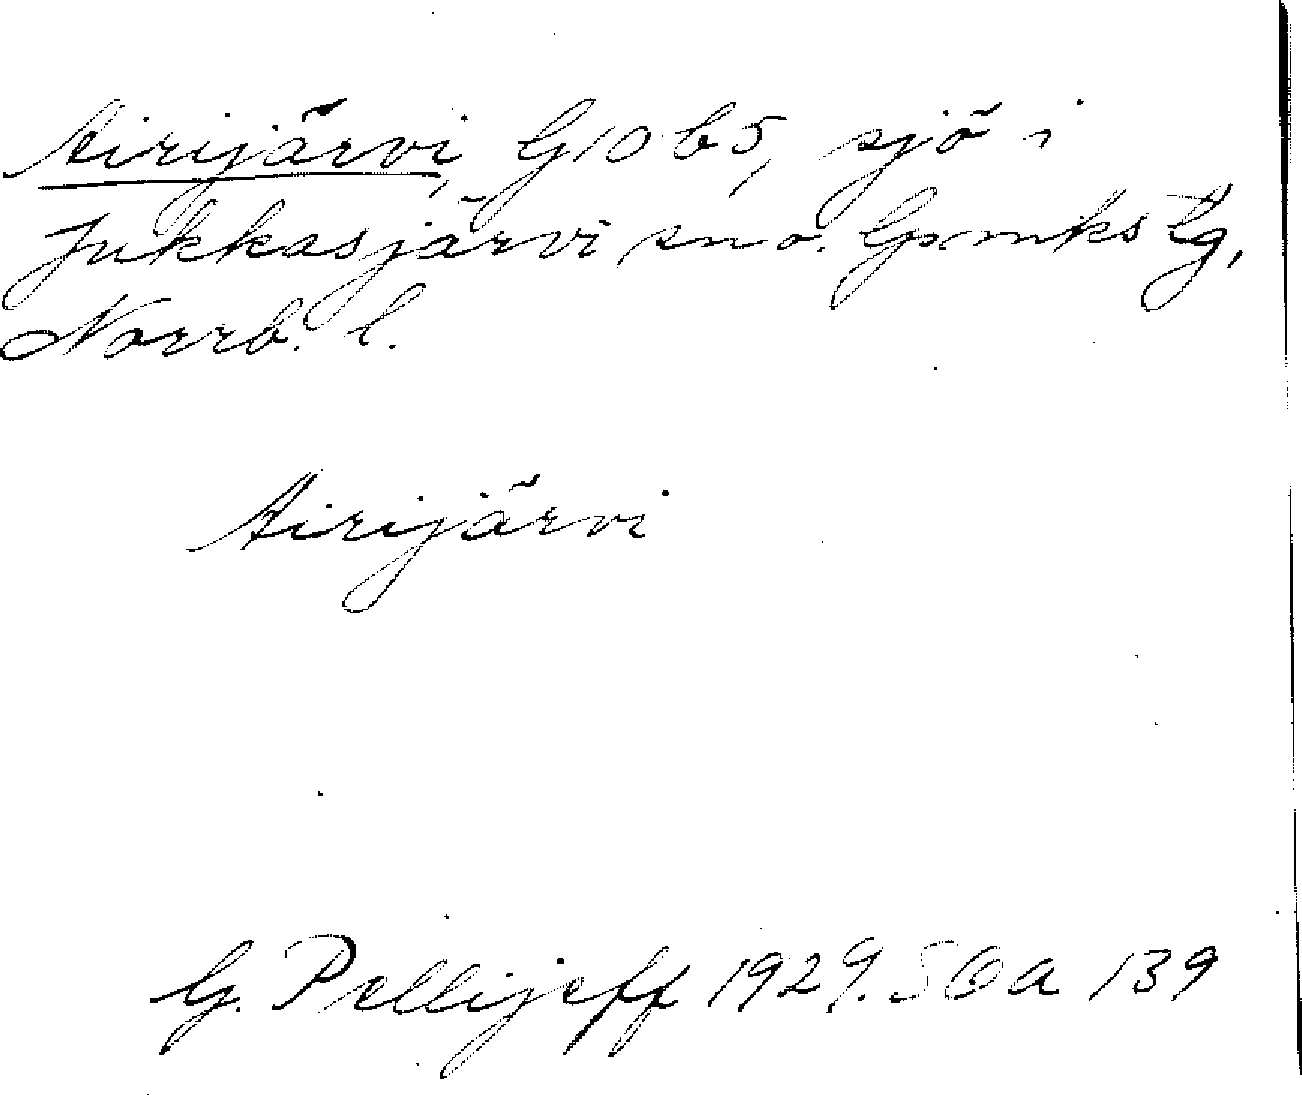 Airijärvi, G10b5, sjö i
Jukkasjärvi sn o. lpxmks tg,
Norrb. l.
Airijärvi
G. Pellijeff 1929. SOA 139